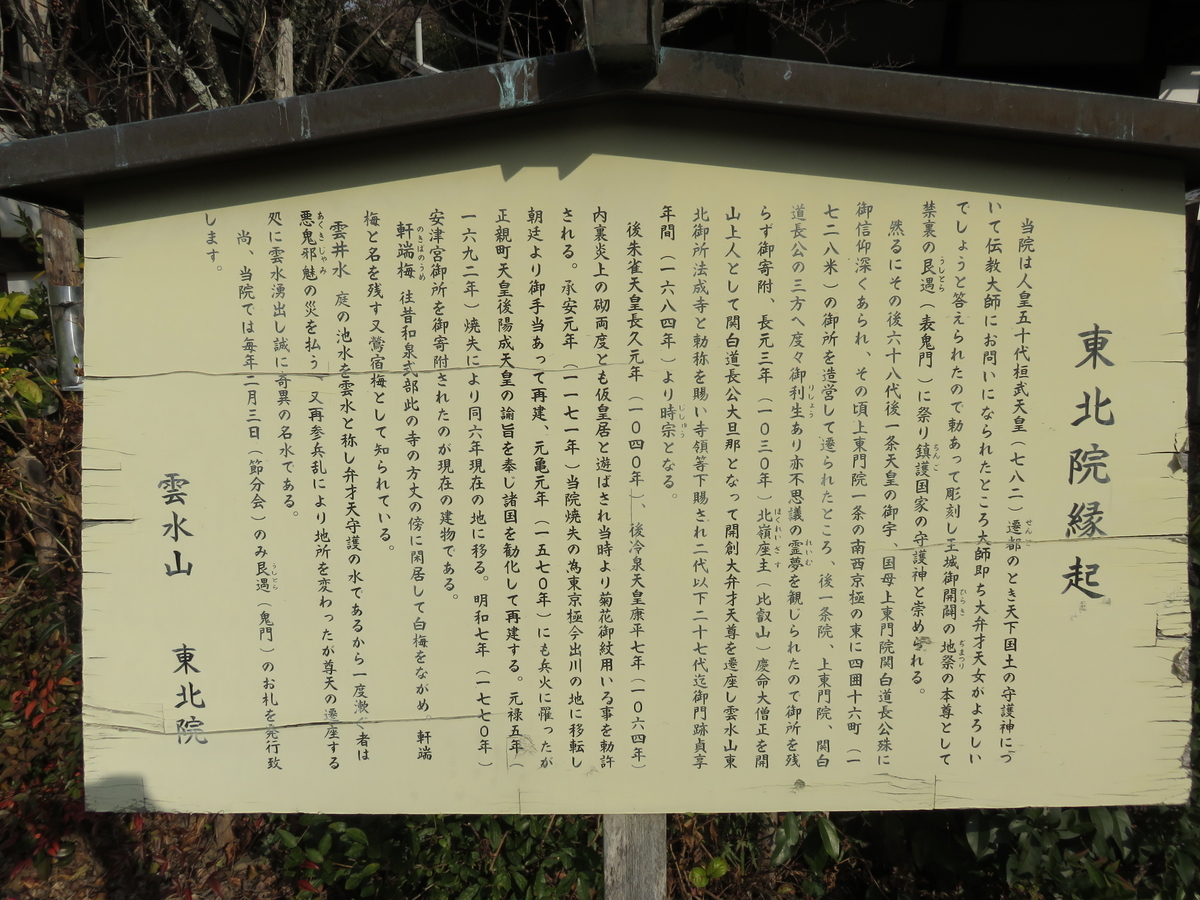 東北院縁起
当院は人皇五十代桓武天皇（七八二）遷都のとき天下国土の守護神につ
いて伝教大師にお問いになられたところ大師即ち大弁才天女がよろしい
でしょうと答えられたので勅あって彫刻し王城御開闢の地祭の本尊として
禁裏の艮遇（表鬼門）に祭り鎮護国家の守護神と崇められる。
然るにその後六十八代後一条天皇の御宇、国母上東門院関白道長公殊に
御信仰深くあられ、その頃上東門院一条の南西京極の東に四囲十六町（一
七二八米）の御所を造営して遷られたところ、後一条院、上東門院、関白
道長公の三方へ度々御利生あり亦不思議の霊夢を観じられたので御所を残
らず御寄附、長元三年（一〇三〇年）北嶺座主（比叡山）慶命大僧正を開
山上人として関白道長公大旦那となって開創大弁才天尊を遷座し雲水山東
北御所法成寺と勅称を賜い寺領等下賜され二代以下二十七代迄御門跡貞享
年間（一六八四年）より時宗となる。
後朱雀天皇長久元年（一〇四〇年）、後冷泉天皇康平七年（一〇六四年）
内裏炎上の砌両度とも仮皇居と遊ばされ当時より菊花御紋用いる事を勅許
される。承安元年（一一七一年）当院焼失の為東京極今出川の地に移転し
朝廷より御手当あって再建、元亀元年（一五七〇年）にも兵火に罹ったが
正親町天皇後陽成天皇の諭旨を奉じ諸国を勧化して再建する。元禄五年（
一六九二年）焼失により同六年現在の地に移る。明和七年（一七七〇年）
安津宮御所を御寄附されたのが現在の建物である。
軒端梅　往昔和泉式部此の寺の方丈の傍に閑居して白梅をながめ。軒端
梅と名を残す又鶯宿梅として知られている。
雲井水　庭の池水を雲水と称し弁才天守護の水であるから一度漱ぐ者は
悪鬼邪魅の災を払う　又再参兵乱により地所を変わったが尊天の遷座する
処に雲水湧出し誠に奇異の名水である。
尚、当院では毎年二月三日（節分会）のみ艮遇（鬼門）のお札を発行致
します。
雲水山　東北院